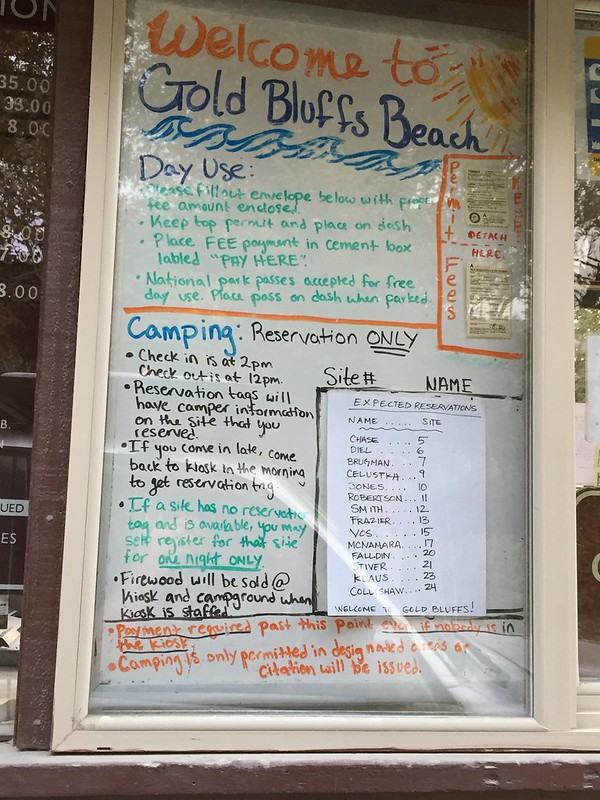 Welcome to
Gold Bluffs Beach
Day Use:
• Please fill out envelope below with proper
fee amount enclosed.
• Keep top permit and place on dash
• Place FEE payment in cement box
labled "PAY HERE".
• National park passes accepted for free
day use. Place pass on dash when parked.
Permit
DETACH
HERE
Fees
Camping: Reservation ONLY
• Check in is at 2pm
Check out is at 12pm.
• Reservation tags will
have camper information
on the site that you
reserved.
• If you come in late, come
back to kiosk in the morning
to get reservation tag.
• If a site has no reservation
tag and is available, you may
self register for that site
for one night ONLY.
• Firewood will be sold @
kiosk and campground when
kiosk is staffed
Site# NAME
EXPECTED RESERVATIONS
NAME ..... SITE
CHASE .... 5
DIEL .... 6
BRUGMAN ... 7
CELUSTKA ... 9
JONES .... 10
ROBERTSON ... 11
SMITH .... 12
FRAZIER .... 13
VOS ..... 15
MCNAMARA .... 17
FALLDIN .... 20
STIVER .... 21
KLAUS .... 23
COLLISHAW .... 24
WELCOME TO GOLD BLUFFS!
• Payment required past this point even if nobody is in
the kiosk.
• Camping is only permitted in designated areas or
citation will be issued.
ION
35.00
33.00
8.00
8.00
7.00
8.00
B.
UED
ES